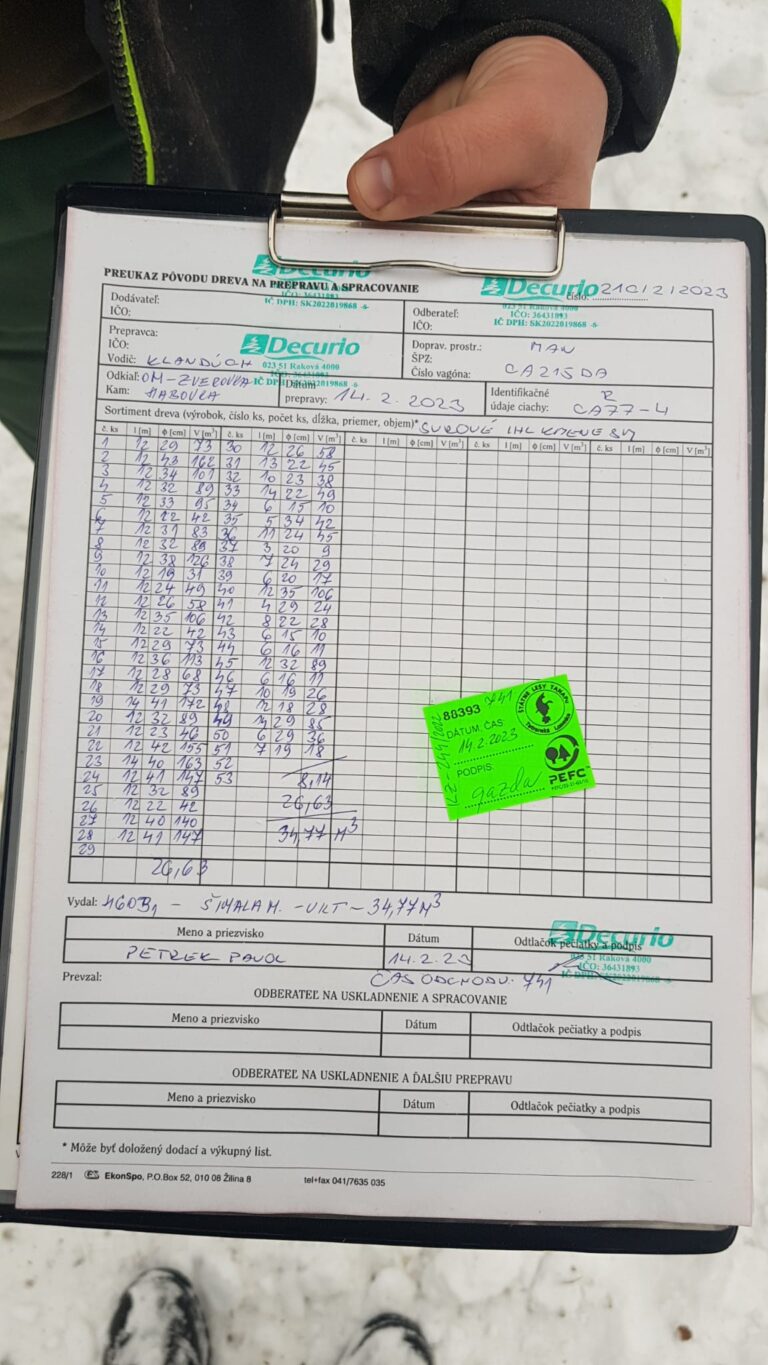 Decurio
IČO: 36431893
IČ DPH: SK2022019868 -8-
PREUKAZ PÔVODU DREVA NA PREPRAVU A SPRACOVANIE
Decurio
číslo: 210/2/2023
IČO: 36431893
IČ DPH: SK2022019868 -8-
Dodávateľ:
IČO:
Odberateľ:
IČO:
Prepravca:
IČO:
Decurio
023 51 Raková 4000
IČO: 36431893
IČ DPH: SK2022019868 -8-
Vodič: KLANDÚCH
Doprav. prostr.: MAN
ŠPZ:
Číslo vagóna: CA215DA
Odkiaľ: OM-ZVEROVKA
Kam: HABOVKA
Dátum prepravy: 14. 2. 2023
Identifikačné údaje ciachy: R CA77-4
Sortiment dreva (výrobok, číslo ks, počet ks, dĺžka, priemer, objem)* SUROVÉ IHL KMENE 8M
č. ks l [m] ϕ [cm] V [m³] č. ks l [m] ϕ [cm] V [m³] č. ks l [m] ϕ [cm] V [m³] č. ks l [m] ϕ [cm] V [m³] č. ks l [m] ϕ [cm] V [m³]
1 12 29 73 30 12 26 58
2 12 43 162 31 13 22 45
3 12 34 101 32 10 23 38
4 12 32 89 33 14 22 49
5 12 33 95 34 6 15 10
6 12 22 42 35 5 34 42
7 12 31 83 36 11 24 45
8 12 32 89 37 3 20 9
9 12 38 126 38 7 24 29
10 12 19 31 39 6 20 17
11 12 24 49 40 12 35 106
12 12 26 58 41 4 29 24
13 12 35 106 42 8 22 28
14 12 22 42 43 6 15 10
15 12 29 73 44 6 16 11
16 12 36 113 45 12 32 89
17 12 28 68 46 6 16 11
18 12 29 73 47 10 19 26
19 14 41 172 48 12 18 28
20 12 32 89 49 14 29 85
21 12 23 46 50 6 29 36
22 12 42 155 51 7 19 18
23 14 40 163 52
24 12 41 147 53 8,14
25 12 32 89
26 12 22 42 26,63
27 12 40 140
28 12 41 147 34,77 M³
29
26,63
88393 741
DÁTUM, ČAS:
14.2.2023
PODPIS
gazda
ŠTÁTNE LESY TANAPU
Tatranská Lomnica
PEFC
Vydal: 460B1 - ŠIMALA M. - VKT - 34,77M³
Meno a priezvisko Dátum Odtlačok pečiatky a podpis
PETREK PAVOL 14.2.23
Decurio
023 51 Raková 4000
IČO: 36431893
IČ DPH: SK2022019868
Prevzal: ČAS ODCHODU: 741
ODBERATEĽ NA USKLADNENIE A SPRACOVANIE
Meno a priezvisko Dátum Odtlačok pečiatky a podpis
ODBERATEĽ NA USKLADNENIE A ĎALŠIU PREPRAVU
Meno a priezvisko Dátum Odtlačok pečiatky a podpis
* Môže byť doložený dodací a výkupný list.
228/1 EkonSpo, P.O.Box 52, 010 08 Žilina 8 tel+fax 041/7635 035